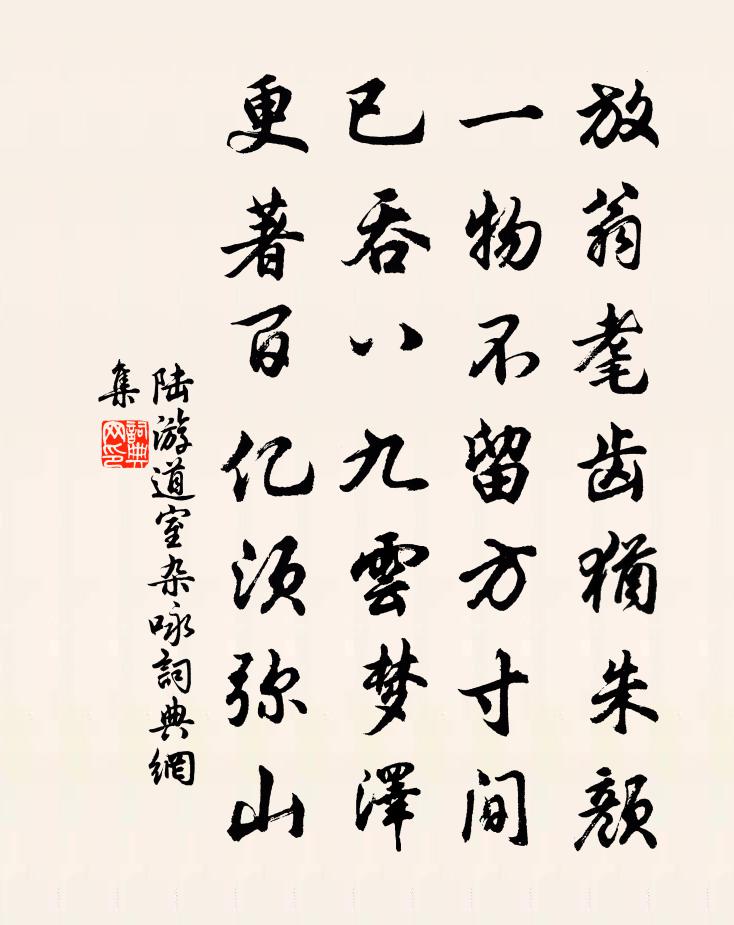 放翁耄齿犹朱颜
一物不留方寸间
已吞八九雲梦澤
更著百亿须弥山
陆游道室杂咏詞典網
集
詞典
网印